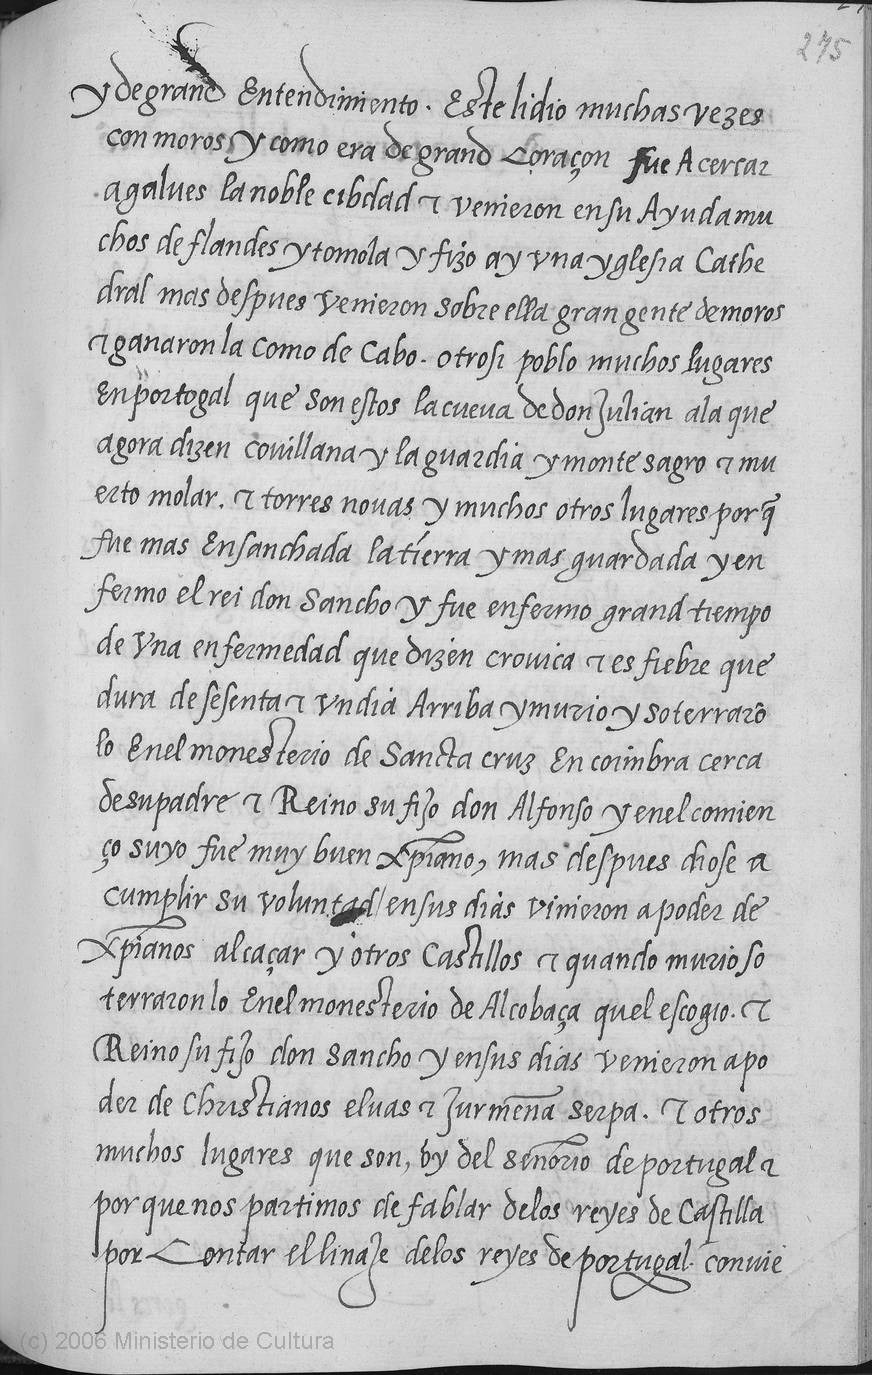 275
y de grand Entendimiento. Este lidio muchas vezes
con moros y como era de grand Coraçon fue Acercar
a galues la noble cibdad ⁊ venieron en su Ayuda mu
chos de flandes y tomola y fizo ay vna yglesia Cathe
dral mas despues venieron sobre ella gran gente de moros
⁊ ganaron la como de Cabo. otrosi poblo muchos lugares
En portogal que son estos la cueua de don Julian ala que
agora dizen couillana y la guardia y monte sagro ⁊ mu
erto molar. ⁊ torres nouas y muchos otros lugares por q̃
fue mas Ensanchada la tierra y mas guardada y en
fermo el rei don Sancho y fue enfermo grand tiempo
de vna enfermedad que dizen cronica ⁊ es fiebre que
dura de sesenta ⁊ vn dia Arriba y murio y soterrarõ
lo En el monesterio de Sancta cruz En coimbra cerca
de su padre ⁊ Reino su fijo don Alfonso y en el comien
ço suyo fue muy buen xp̃iano, mas despues diose a
cumplir su voluntad / en sus dias vinieron a poder de
xp̃ianos alcaçar y otros Castillos ⁊ quando murio so
terraron lo En el monesterio de Alcobaça quel escogio. ⁊
Reino su fijo don Sancho y en sus dias venieron a po
der de Christianos eluas ⁊ Jurmeña serpa. ⁊ otros
muchos lugares que son, oy del señorio de portugal ⁊
por que nos partimos de fablar delos reyes de Castilla
por Contar el linaje delos reyes de portugal. conuie
(c) 2006 Ministerio de Cultura